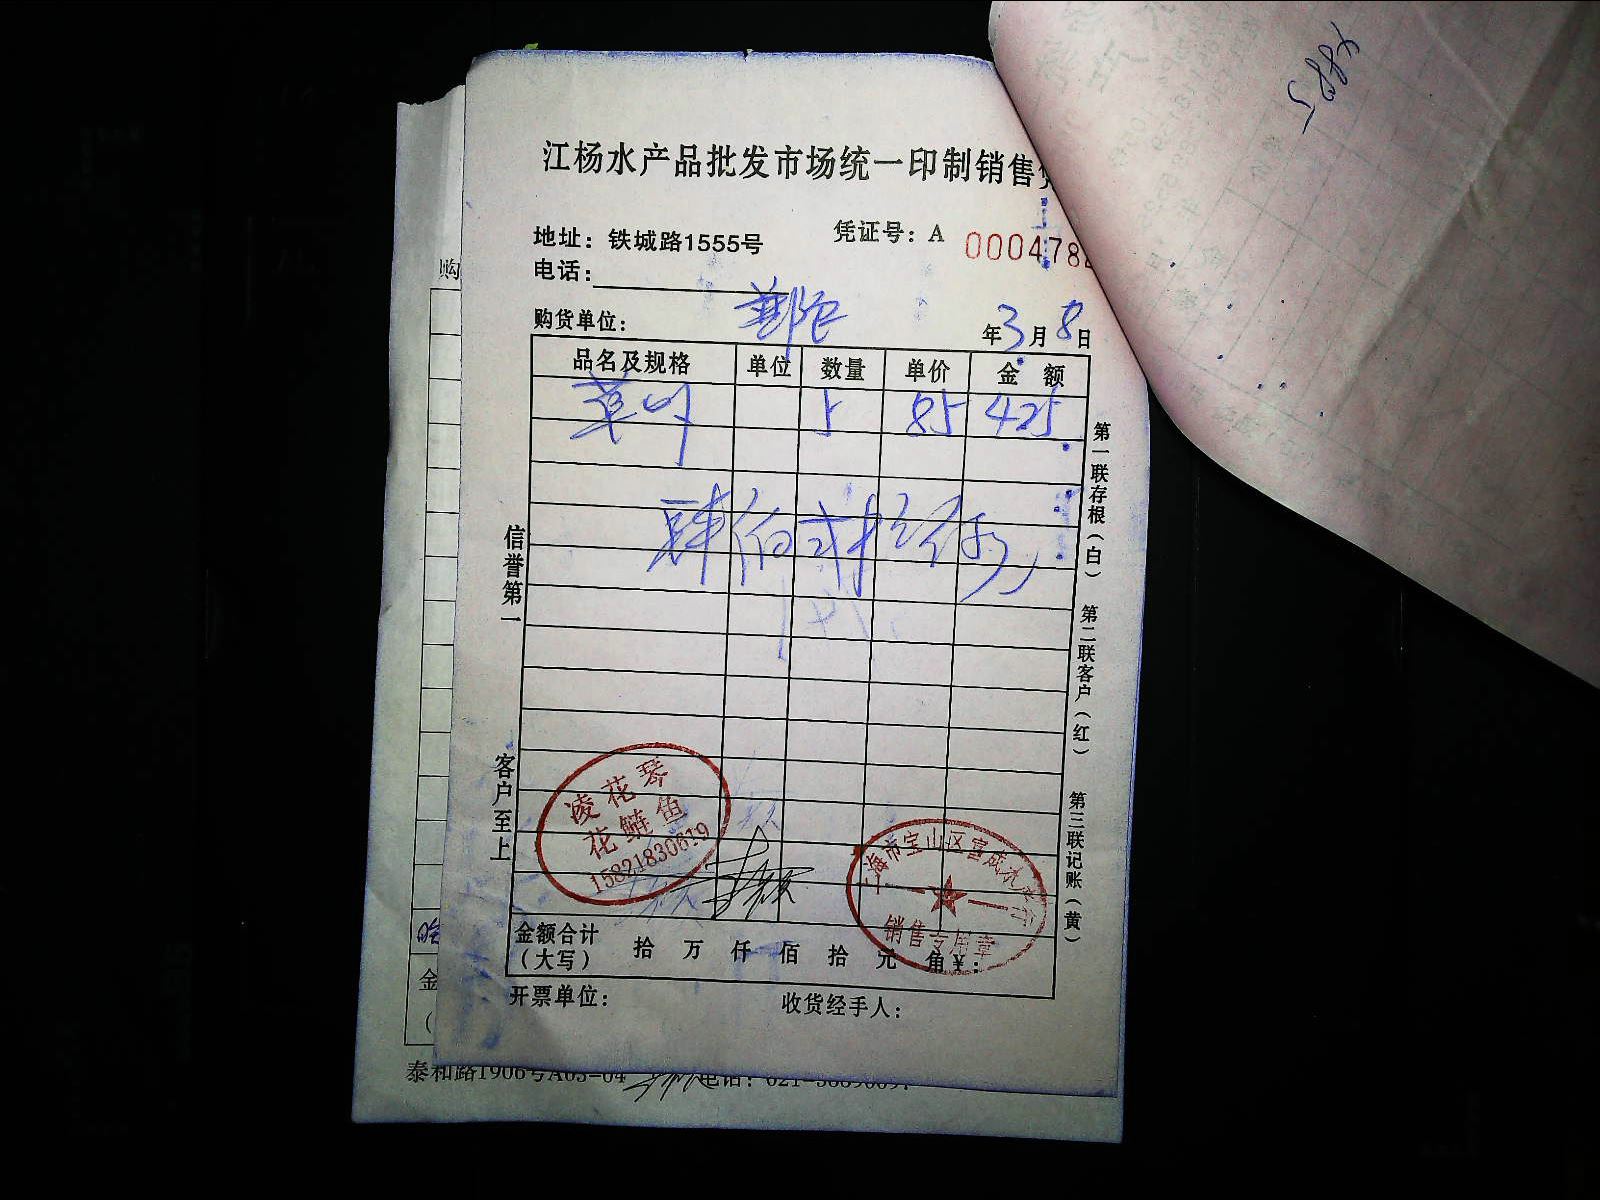 江杨水产品批发市场统一印制销售
地址：铁城路1555号
凭证号：A 000478
电话：
购货单位：
年3月8日
品名及规格 单位 数量 单价 金额
5 85 425
肆佰弍拾伍元
信誉第一
客户至上
第一联存根（白）
第二联客户（红）
第三联记账（黄）
凌花琴
花鲢鱼
15821830619
销售专用章
金额合计（大写） 拾 万 仟 佰 拾 元 角 ¥：
开票单位：
收货经手人：
购
金
泰和路1906号A03-04
电话：021-